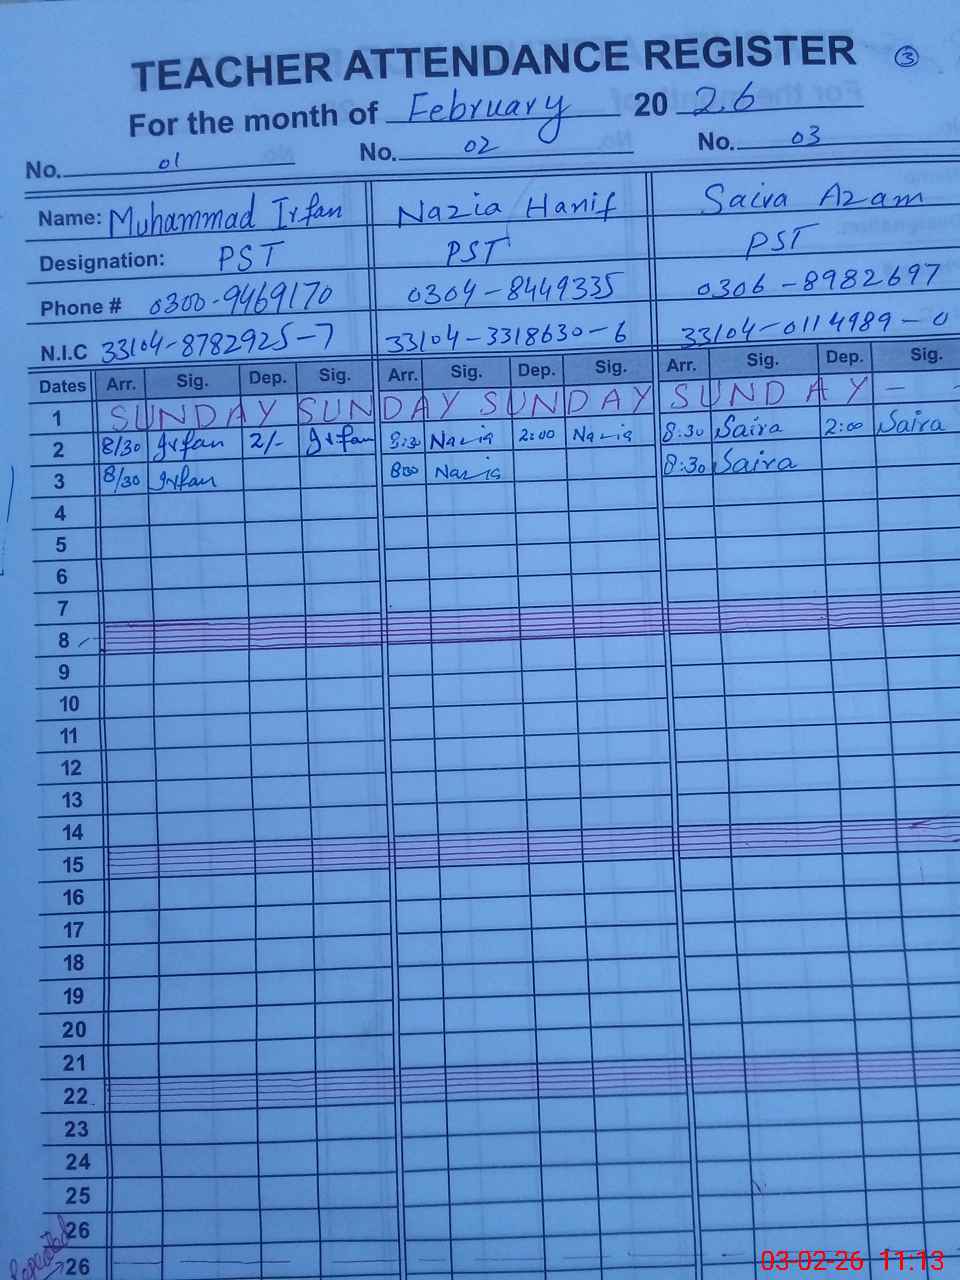 TEACHER ATTENDANCE REGISTER 3
For the month of February 20 2.6
No. 01 No. 02 No. 03
Name: Muhammad Irfan Nazia Hanif Saira Azam
Designation: PST PST PST
Phone # 0300-9469170 0304-8449335 0306-8982697
N.I.C 33104-8782925-7 33104-3318630-6 33104-0114989-0
Dates Arr. Sig. Dep. Sig. Arr. Sig. Dep. Sig. Arr. Sig. Dep. Sig.
1 SUNDAY SUNDAY SUNDAY SUNDAY - -
2 8/30 Irfan 2/- Irfan 8:30 Nazia 2:00 Nazia 8:30 Saira 2:00 Saira
3 8/30 Irfan 800 Nazia 8:30 Saira
4
5
6
7
8
9
10
11
12
13
14
15
16
17
18
19
20
21
22
23
24
25
26
Repeated 26
03-02-26 11:13